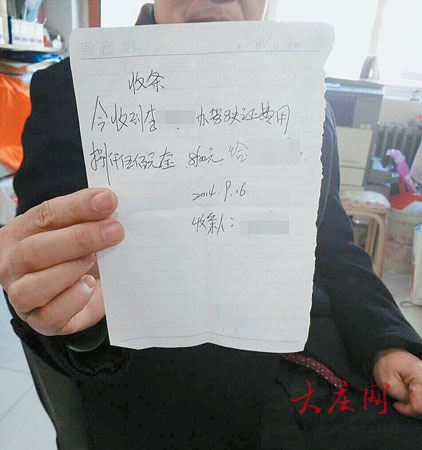 收条
今收到李 办驾驶证费用
捌仟伍佰元 8500元 给
2014.9.16
收条人:
大庆网